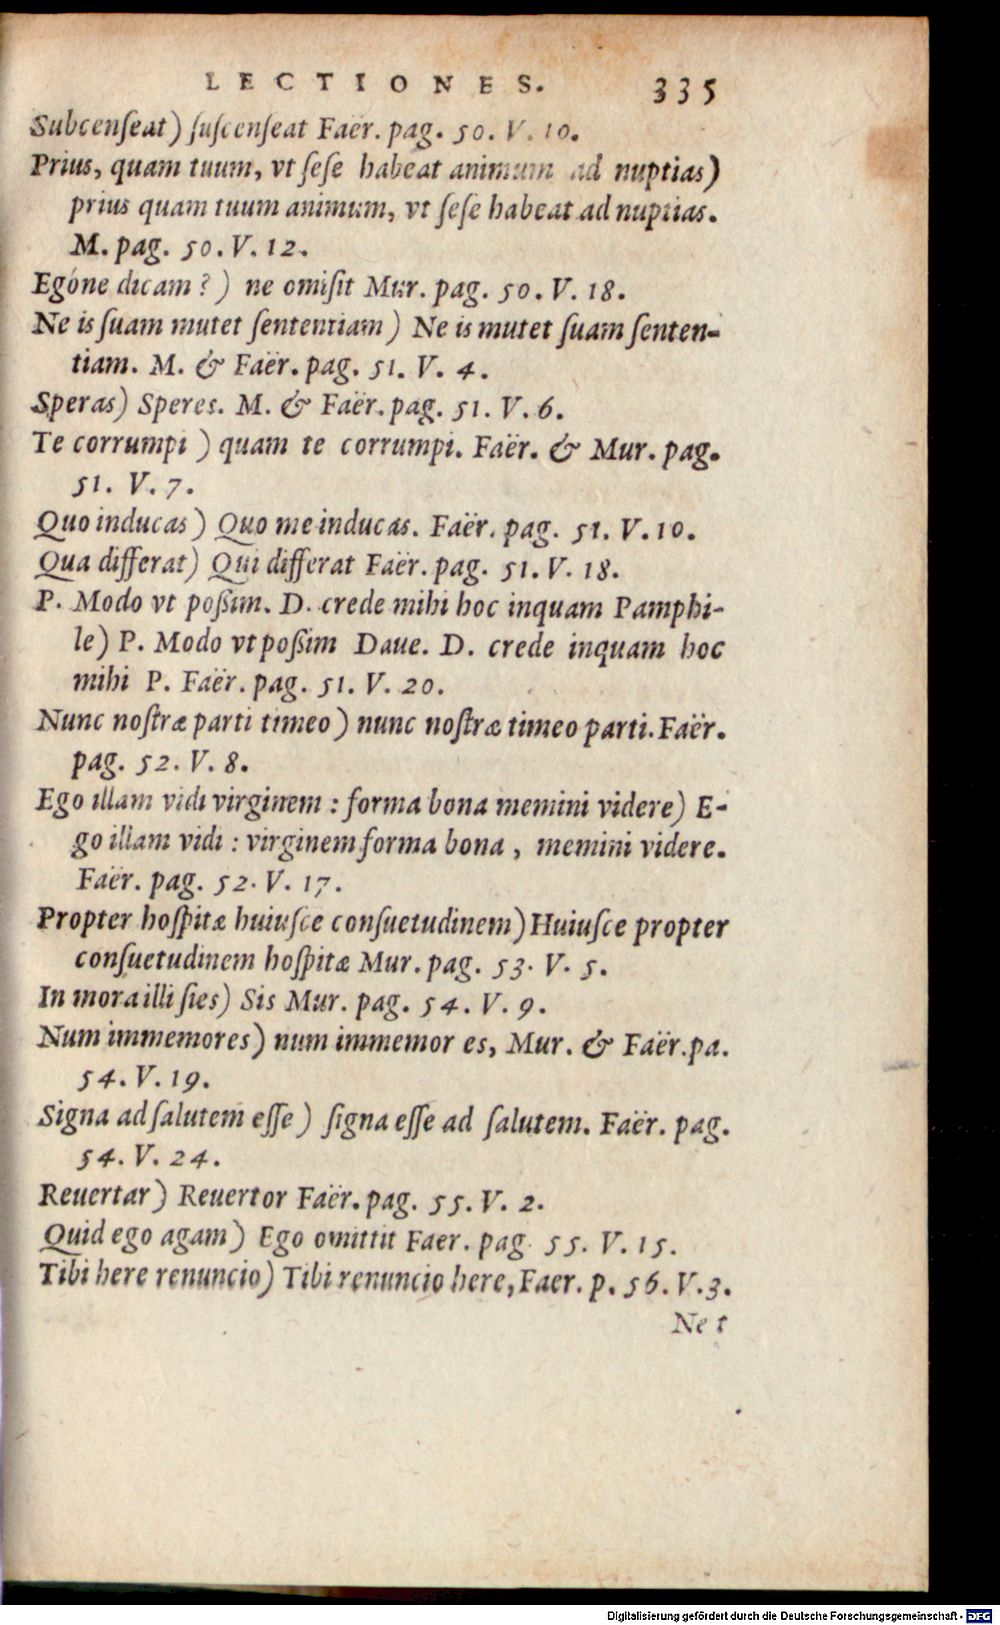 LECTIONES. 335
Subcenſeat) ſuſcenſeat Faër. pag. 50. V. 10.
Prius, quam tuum, vt ſeſe habeat animum ad nuptias)
prius quam tuum animum, vt ſeſe habeat ad nuptias.
M. pag. 50. V. 12.
Egóne dicam?) ne omiſit Mur. pag. 50. V. 18.
Ne is ſuam mutet ſententiam) Ne is mutet ſuam ſenten-
tiam. M. & Faër. pag. 51. V. 4.
Speras) Speres. M. & Faër. pag. 51. V. 6.
Te corrumpi) quam te corrumpi. Faër. & Mur. pag.
51. V. 7.
Quo inducas) Quo me inducas. Faër. pag. 51. V. 10.
Qua differat) Qui differat Faër. pag. 51. V. 18.
P. Modo vt poßim. D. crede mihi hoc inquam Pamphi-
le) P. Modo vt poßim Daue. D. crede inquam hoc
mihi P. Faër. pag. 51. V. 20.
Nunc noſtræ parti timeo) nunc noſtræ timeo parti. Faër.
pag. 52. V. 8.
Ego illam vidi virginem : forma bona memini videre) E-
go illam vidi : virginem forma bona , memini videre.
Faër. pag. 52. V. 17.
Propter hoſpitæ huiuſce conſuetudinem) Huiuſce propter
conſuetudinem hoſpitæ Mur. pag. 53. V. 5.
In mora illi ſies) Sis Mur. pag. 54. V. 9.
Num immemores) num immemor es, Mur. & Faër. pa.
54. V. 19.
Signa ad ſalutem eſſe) ſigna eſſe ad ſalutem. Faër. pag.
54. V. 24.
Reuertar) Reuertor Faër. pag. 55. V. 2.
Quid ego agam) Ego omittit Faer. pag. 55. V. 15.
Tibi here renuncio) Tibi renuncio here, Faer. p. 56. V. 3.
Ne t
Digitalisierung gefördert durch die Deutsche Forschungsgemeinschaft - DFG